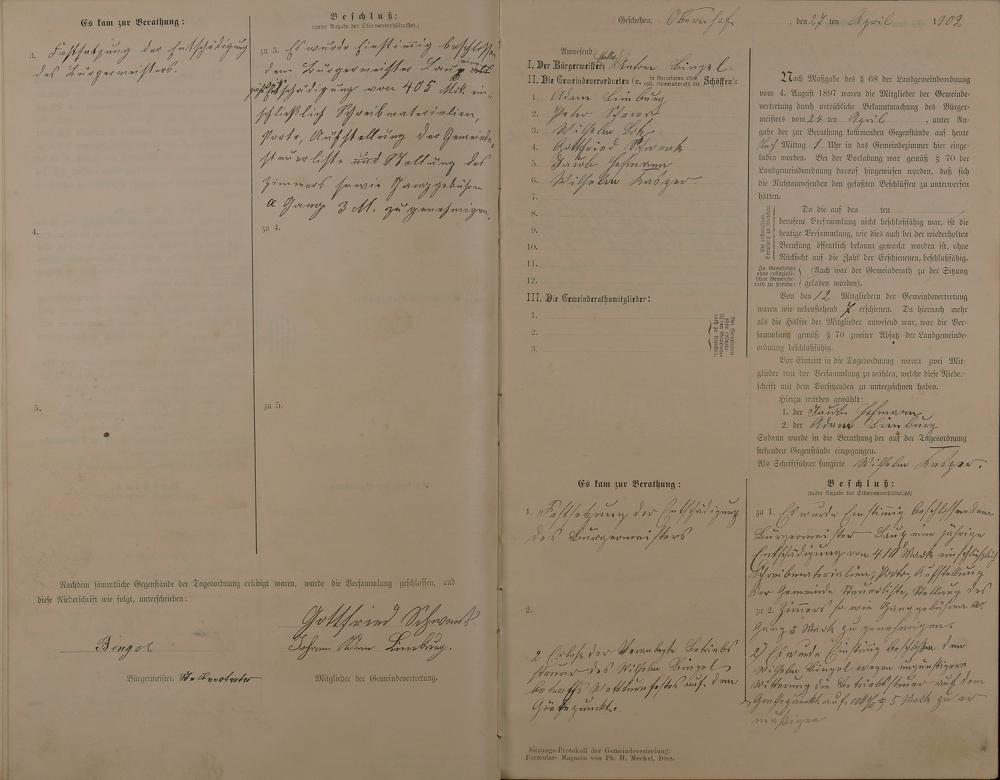 Es kam zur Berathung:
Beschluß:
(unter Angabe des Stimmverhältnisses.)
3. Festsetzung der Entschädigung
des Bürgermeisters.
zu 3. Es wurde Einstimmig beschlossen
dem Bürgermeister
Entschädigung von 405 Mrk. ein-
schließlich Schreibmaterialien,
Porto, Aufstellung der Gemeinde-
steuerliste und Stellung des
Zimmers sowie Ganggebühren
a Gang 3 M. zu genehmigen.
4.
zu 4.
5.
zu 5.
Nachdem sämmtliche Gegenstände der Tagesordnung erledigt waren, wurde die Versammlung geschlossen, und
diese Niederschrift wie folgt, unterschrieben:
Gottfried Schwenk
Bingel
Johann Limburg.
Bürgermeister. Stellvertreter
Mitglieder der Gemeindevertretung.
Geschehen, Obernhof, den 27 ten April 1902
Anwesend:
I. Der Bürgermeister: Anton Bingel
II. Die Gemeindeverordneten (u. in Gemeinden ohne kol. Gemeinderath die Schöffen):
1. Adam Limburg
2. Peter
3. Wilhelm
4. Gottfried Schwenk
5. Jacob Hofmann
6. Wilhelm Kasper
7.
8.
9.
10.
11.
12.
III. Die Gemeinderathsmitglieder:
1.
2.
3.
Nach Maßgabe des § 68 der Landgemeindeordnung
vom 4. August 1897 waren die Mitglieder der Gemeinde-
vertretung durch ortsübliche Bekanntmachung des Bürger-
meisters vom 24 ten April, unter An-
gabe der zur Berathung kommenden Gegenstände auf heute
Nach Mittag 1 Uhr in das Gemeindezimmer hier einge-
laden worden. Bei der Vorladung war gemäß § 70 der
Landgemeindeordnung darauf hingewiesen worden, daß sich
die Nichtanwesenden den gefaßten Beschlüssen zu unterwerfen
hätten.
Da die auf den ten
berufene Versammlung nicht beschlußfähig war, ist die
heutige Versammlung, wie dies auch bei der wiederholten
Berufung öffentlich bekannt gemacht worden ist, ohne
Rücksicht auf die Zahl der Erschienenen, beschlußfähig.
(Auch war der Gemeinderath zu der Sitzung
geladen worden).
Von den 12 Mitgliedern der Gemeindevertretung
waren wie nebenstehend 7 erschienen. Da hiernach mehr
als die Hälfte der Mitglieder anwesend war, war die Ver-
sammlung gemäß § 70 zweiter Absatz der Landgemeinde-
ordnung beschlußfähig.
Vor Eintritt in die Tagesordnung waren zwei Mit-
glieder von der Versammlung zu wählen, welche diese Nieder-
schrift mit dem Vorsitzenden zu unterzeichnen haben.
Hierzu wurden gewählt:
1. der Jacob Hofmann
2. der Adam Limburg
Sodann wurde in die Berathung der auf der Tagesordnung
stehenden Gegenstände eingegangen.
Als Schriftführer fungirte Wilhelm Kasper.
Es kam zur Berathung:
Beschluß:
(unter Angabe des Stimmverhältnisses)
1. Festsetzung der Entschädigung
des Bürgermeisters
zu 1. Es wurde Einstimmig beschlossen dem
Bürgermeister eine jährige
Entschädigung von 410 Mark einschließlich
Schreibmaterialien, Porto, Aufstellung
der Gemeinde Steuerliste, Stellung des
zu 2. Zimmers so wie Ganggebühren a.
Gang 3 Mark zu genehmigen.
2.
2. Erlaß der Betriebs
steuer des Wilhelm Bingel
betreffs auf dem
Goethepunkt.
2) Es wurde Einstimmig beschlossen dem
Wilhelm Bingel wegen ungünstigem
Witterung die Betriebssteuer auf dem
Goethepunkt auf 5 Mark zu er
mäßigen
Sitzungs-Protokoll der Gemeindevertretung.
Formular-Magazin von Ph. H. Meckel, Diez.